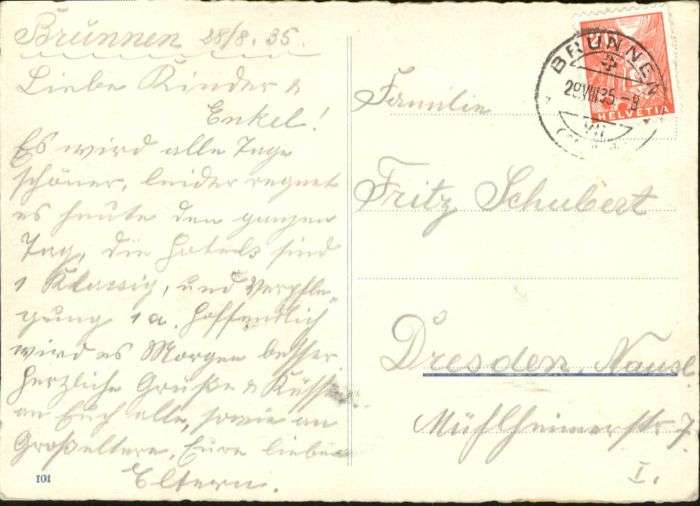 Brunnen 28/8. 35.
Liebe Kinder &
Enkel!
Es wird alle Tage
schöner, leider regnet
es heute den ganzen
Tag, die Hotels sind
1 Klassig, und Verpfle-
gung 1a. Hoffentlich
wird es Morgen besser
Herzliche Grüße & Küsse
an Euch alle, sowie an
Großeltern, Eure lieben
Eltern.
101
BRUNNEN
29.VIII.35. 8
VII
HELVETIA
Familie
Fritz Schubert
Dresden, Nausl.
Mühlheimerstr 7.
I.